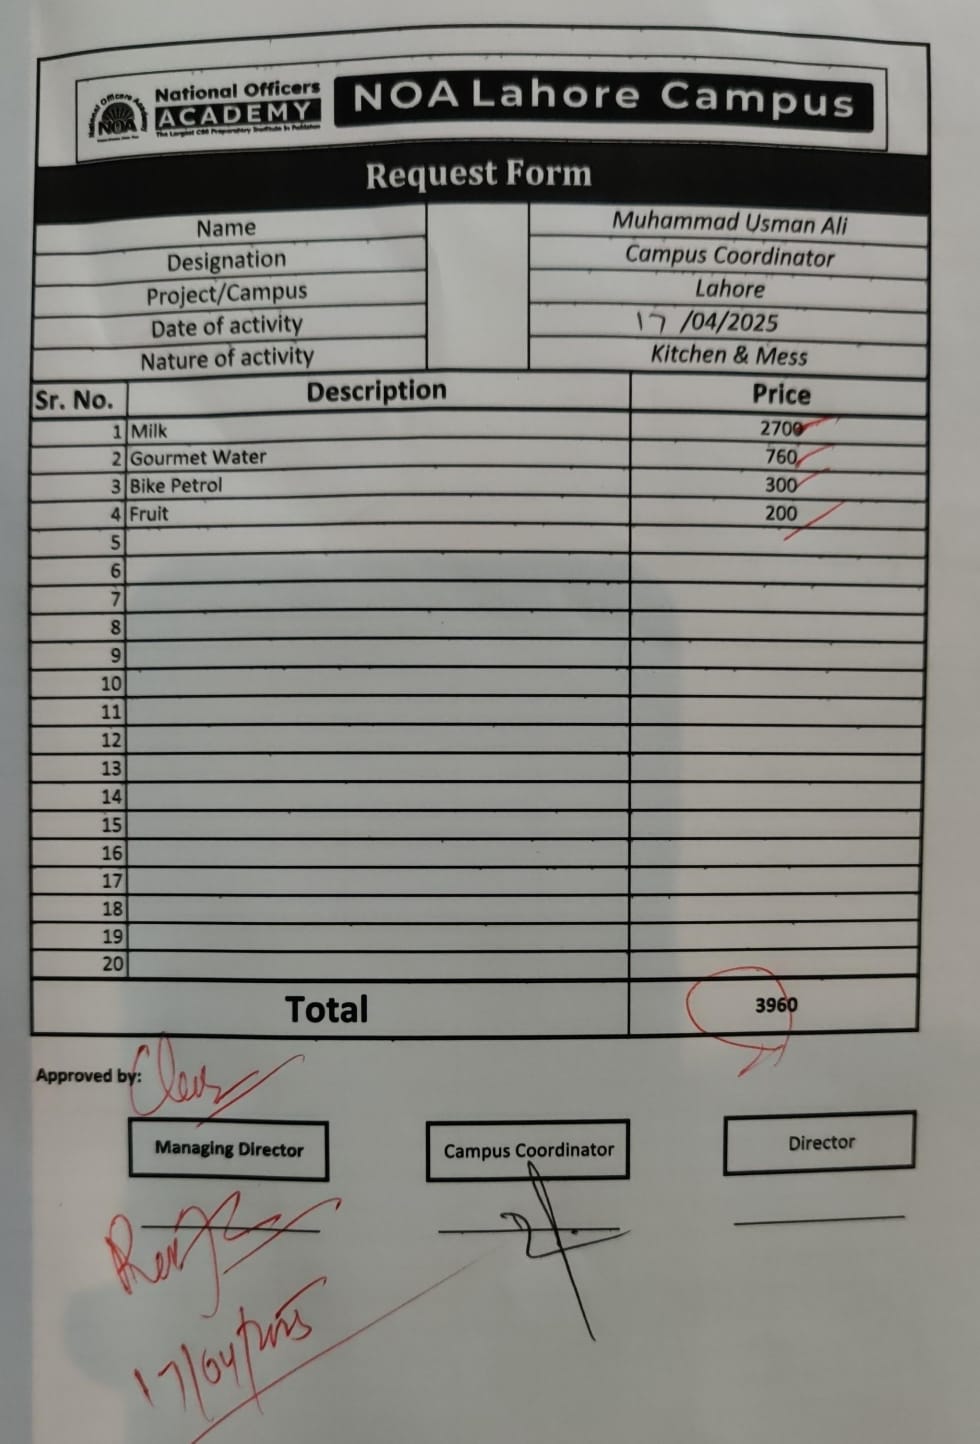 National Officers Academy
NOA
National Officers
ACADEMY
The Largest CSS Preparatory Institute in Pakistan
NOA Lahore Campus
Request Form
Name Muhammad Usman Ali
Designation Campus Coordinator
Project/Campus Lahore
Date of activity 17 /04/2025
Nature of activity Kitchen & Mess
Sr. No. Description Price
1 Milk 2700
2 Gourmet Water 760
3 Bike Petrol 300
4 Fruit 200
5
6
7
8
9
10
11
12
13
14
15
16
17
18
19
20
Total 3960
Approved by:
Managing Director Campus Coordinator Director
17/04/2025